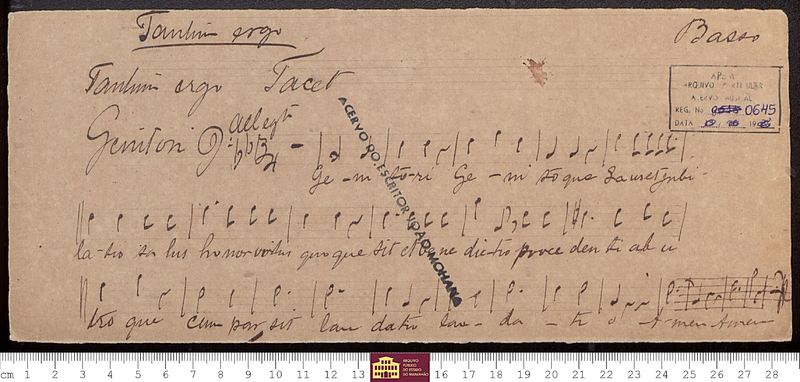 Tantum ergo
Basso
Tantum ergo Tacet
APEM
ARQUIVO PARTICULAR
ACERVO MUSICAL
REG. No 0645
DATA
Genitori Allegto
ACERVO DO ESCRITOR JOAO MOHANA
Ge - ni to-ri Ge - ni to que Lauset jubi -
la-tio sa lus honor virtus quo que sit et bene dictio proce den ti ab u
tro que com par sit lau datio lau - da - ti o Amen Amen
cm 1 2 3 4 5 6 7 8 9 10 11 12 13 16 17 18 19 20 21 22 23 24 25 26 27 28
ARQUIVO
PÚBLICO
DO ESTADO
DO MARANHÃO